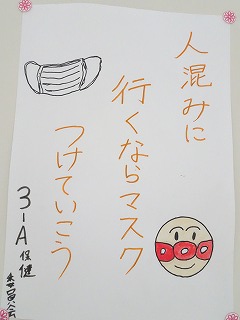 人混みに
行くならマスク
つけていこう
3-A 保健
委員会